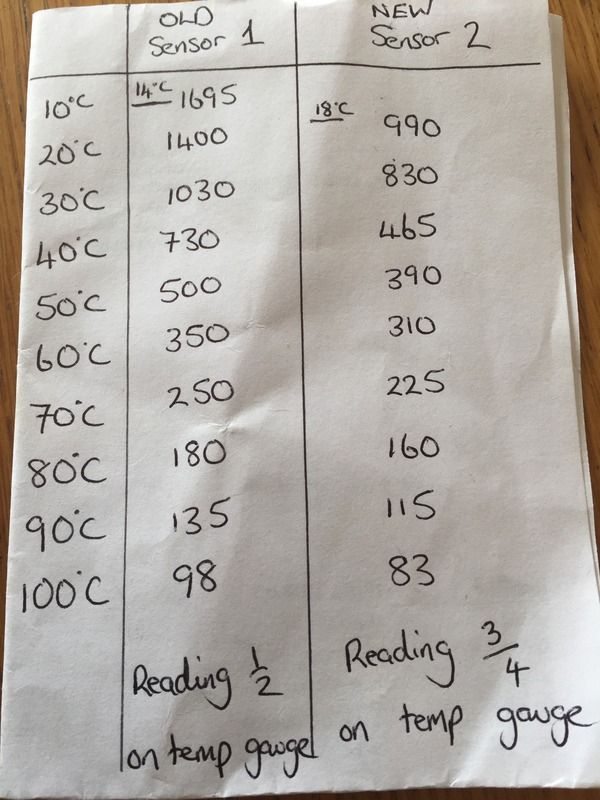 OLD Sensor 1 NEW Sensor 2
10°C 14°C 1695 18°C 990
20°C 1400 830
30°C 1030 465
40°C 730 390
50°C 500 310
60°C 350 225
70°C 250 160
80°C 180 115
90°C 135 83
100°C 98
Reading 1/2 on temp gauge
Reading 3/4 on temp gauge